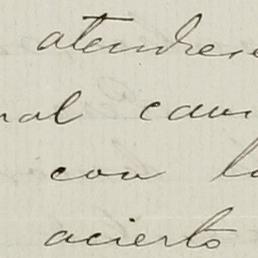 atendiese
nal cam
con lo
acierto